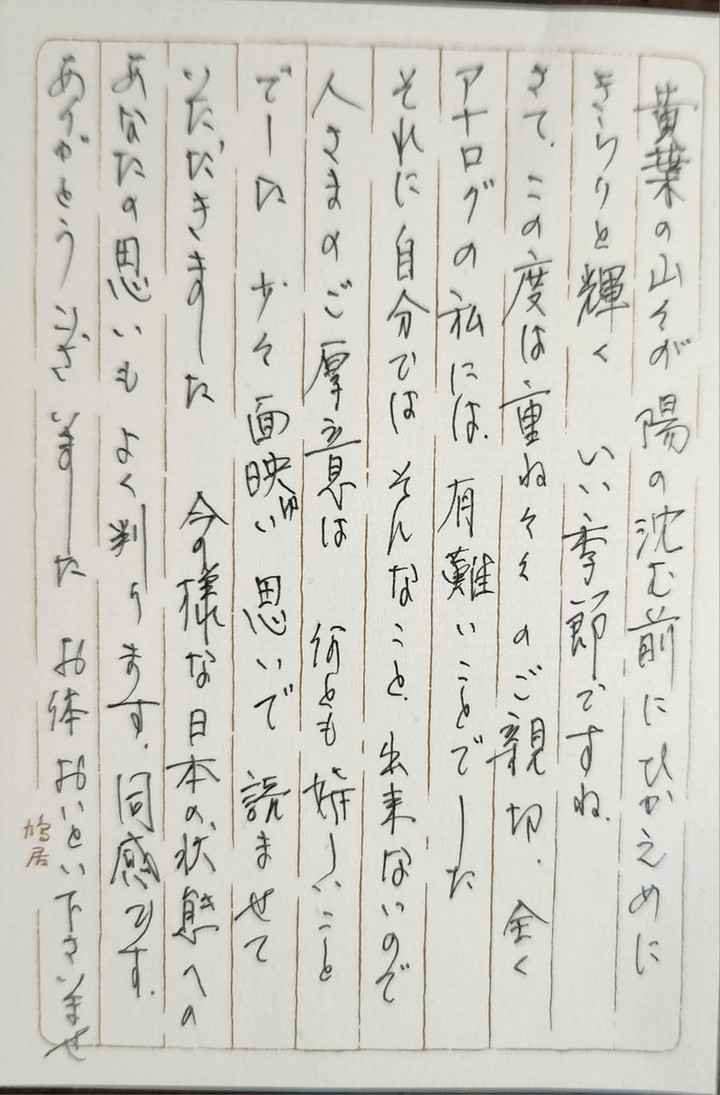 黄葉の山々が陽の沈む前にひかえめに
きらりと輝く いい季節ですね。
さて、この度は重ね々々のご親切、全く
アナログの私には、有難いことでした
それに自分ではそんなこと、出来ないので
人さまのご厚意は 何とも嬉しいこと
でした 少々面映ゆい思いで 読ませて
いただきました 今の様な日本の状態への
あなたの思いもよく判ります。同感です。
ありがとうございました お体おいとい下さいませ
鳩居